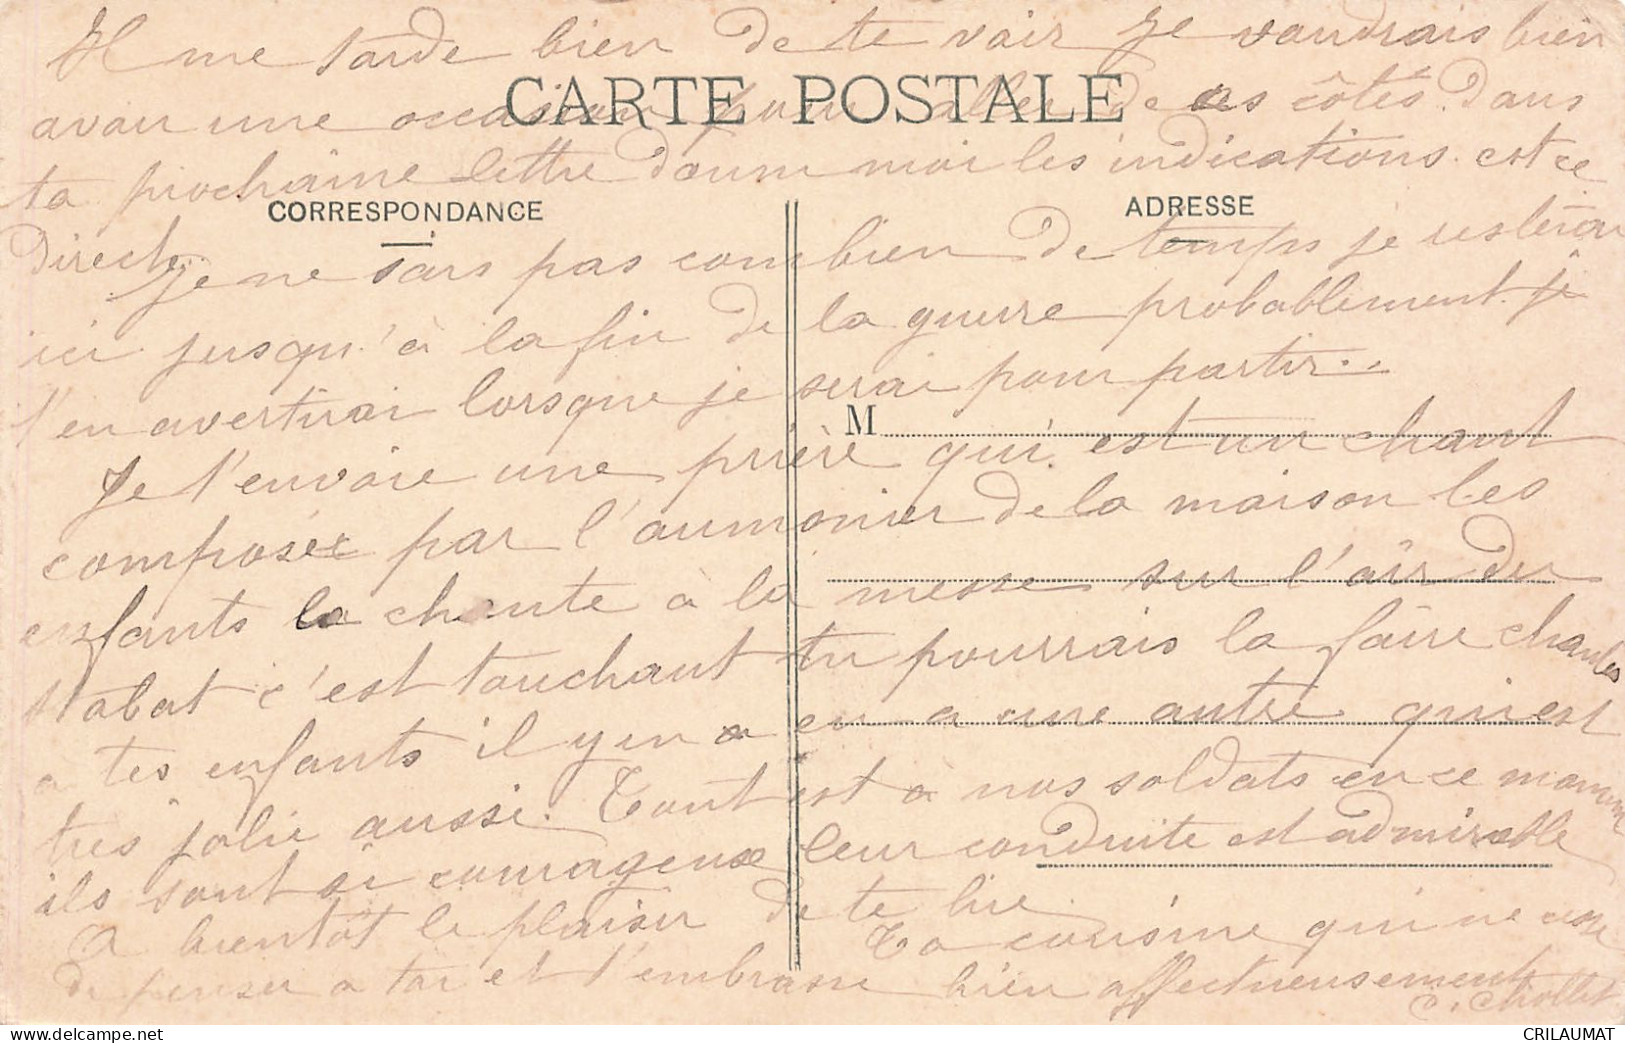 Il me tarde bien de te voir je voudrais bien
CARTE POSTALE
avoir une occasion pour aller de ces côtés. Dans
ta prochaine lettre donne moi les indications. est ce
CORRESPONDANCE
ADRESSE
direct. je ne sais pas combien de temps je resterai
ici jusqu'à la fin de la guerre probablement. je
t'en avertirai lorsque je serai pour partir..
M
Je t'envoie une prière qui est un chant
composée par l'aumonier de la maison les
enfants la chante à la messe sur l'air du
stabat c'est touchant tu pourrais la faire chanter
a tes enfants il y en a en a une autre qui est
très jolie aussi. Tout est à nos soldats en ce moment
ils sont si courageux leur conduite est admirable
A bientôt le plaisir de te lire.
Ta cousine qui ne cesse
de penser a toi et t'embrasse bien affectueusement
C. Chollet
CRILAUMAT